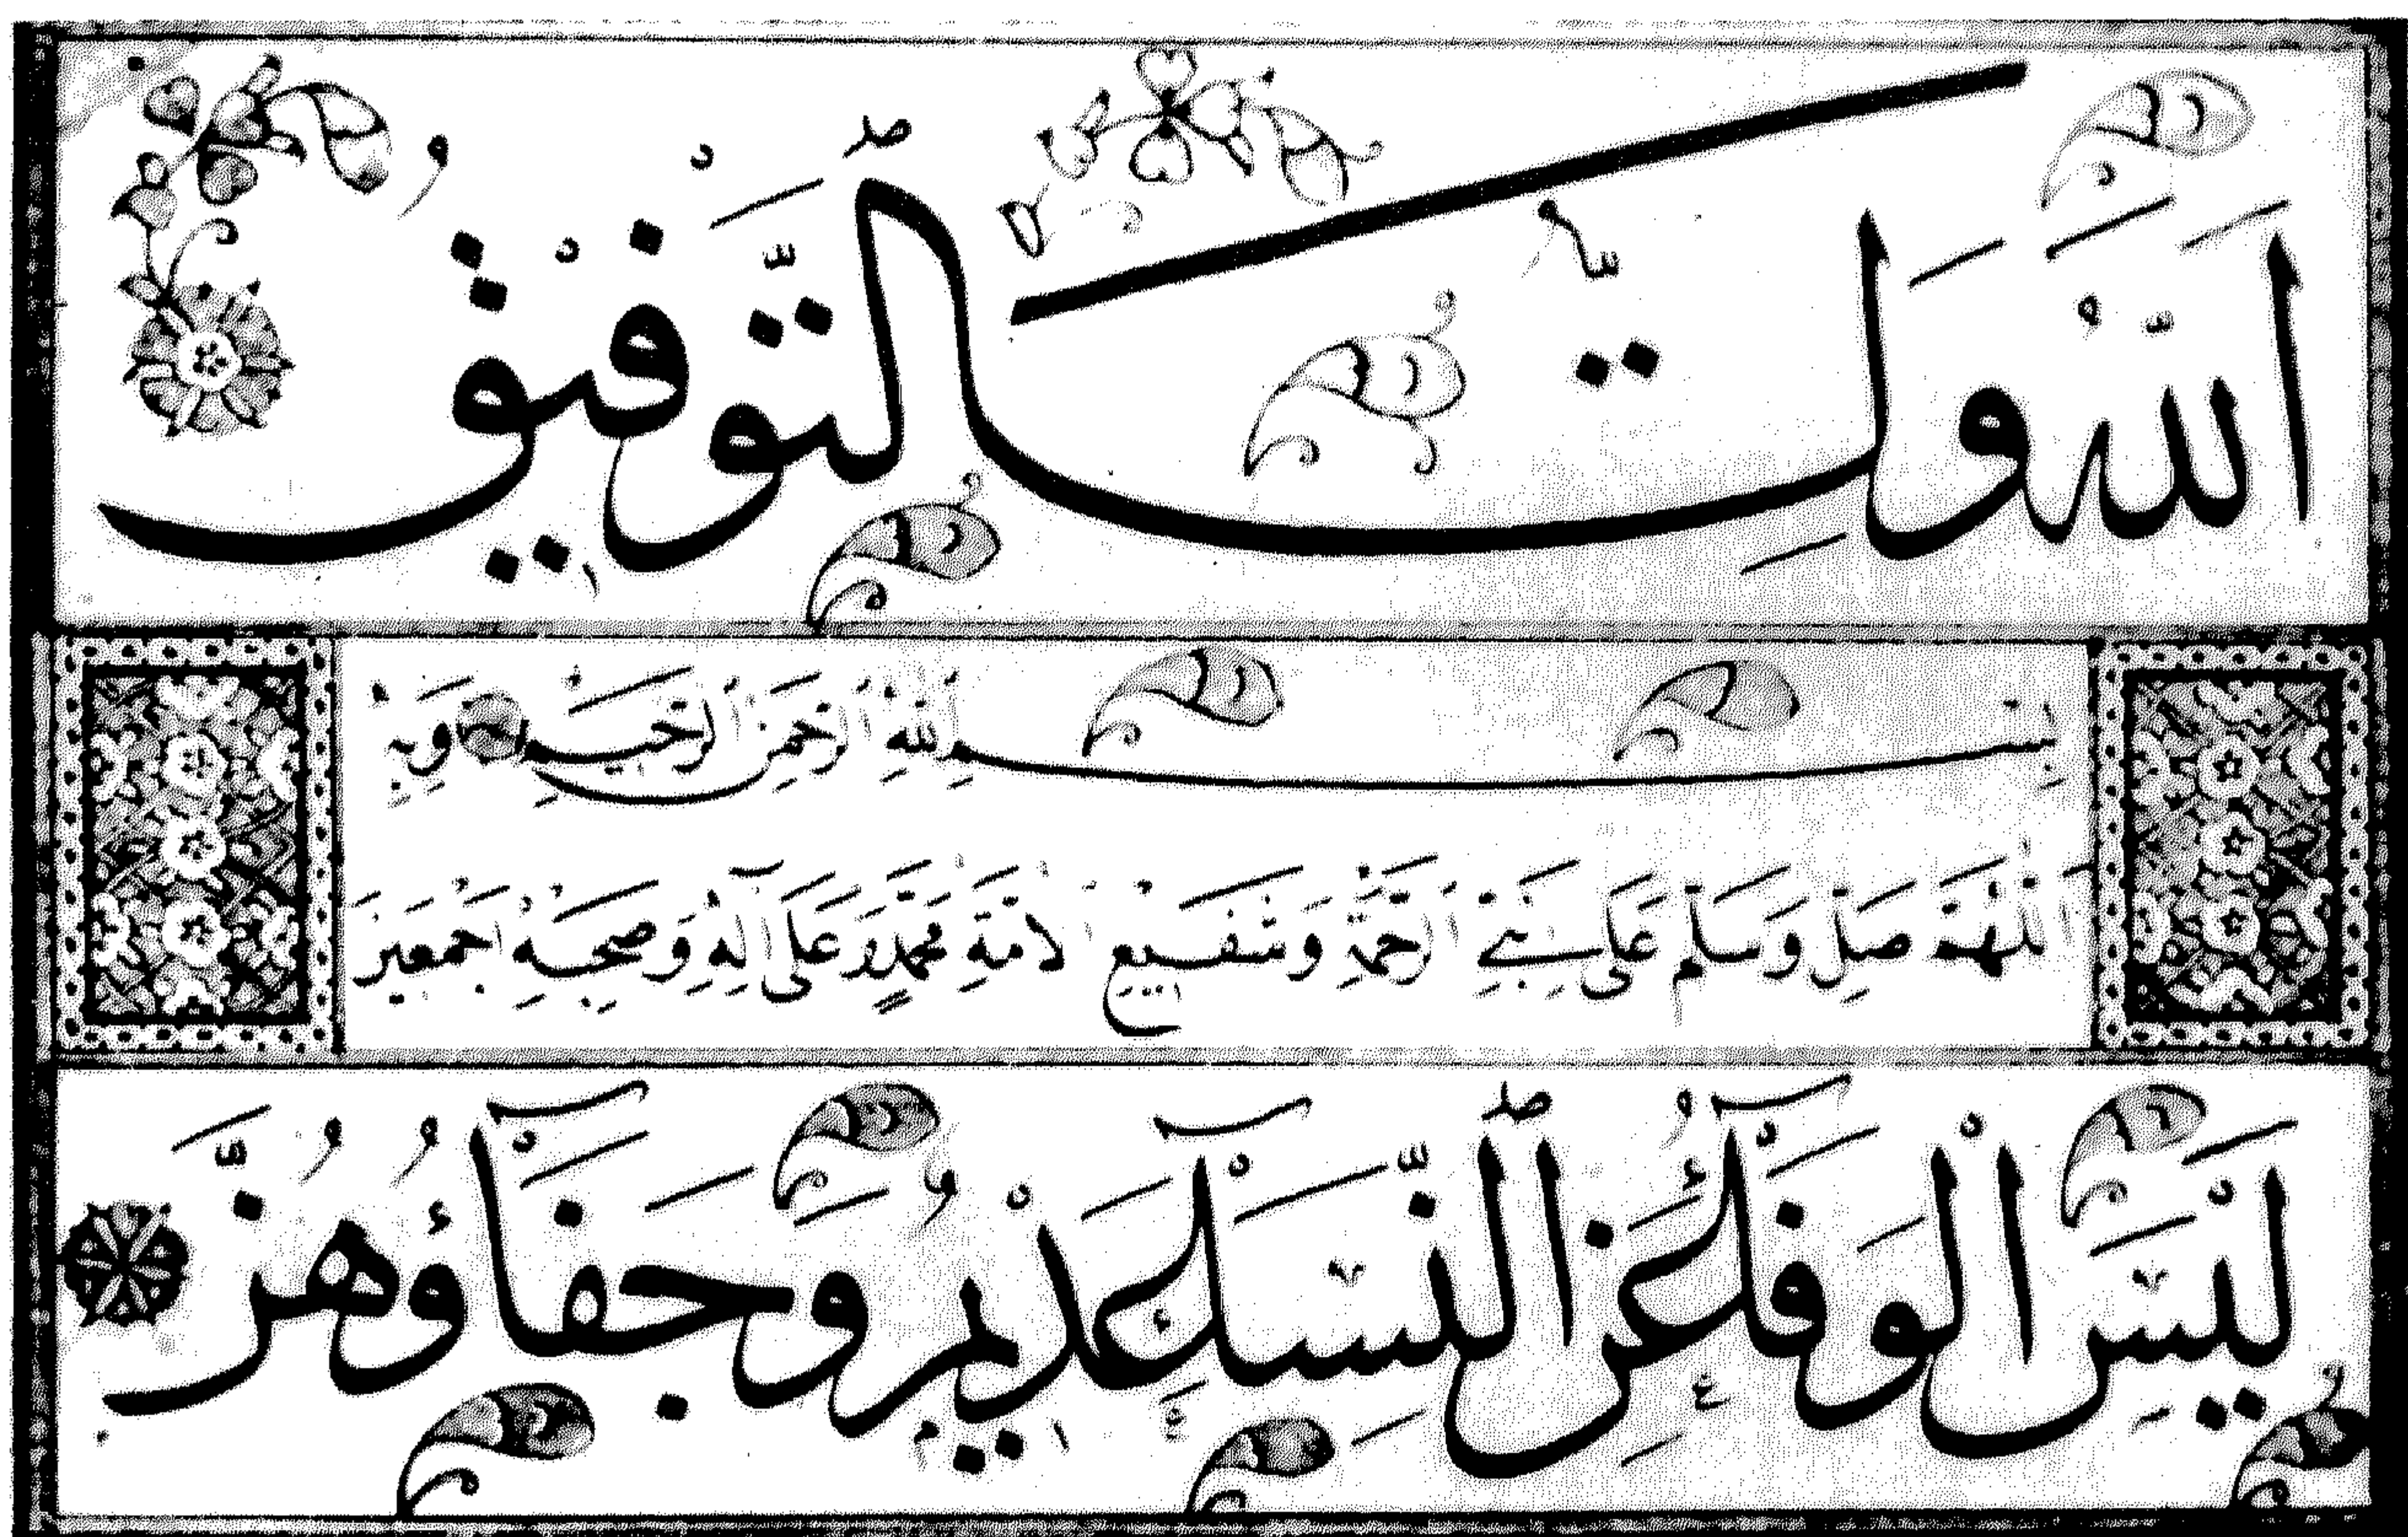 اَللّٰهُ وَلِيُّ التَّوْفِيْقُ
بِسْمِ اللهِ الرَّحْمٰنِ الرَّحِيْمِ وَبِهِ
اَللّٰهُمَّ صَلِّ وَسَلِّمْ عَلَى نَبِيِّ الرَّحْمَةِ وَشَفِيْعِ الْاُمَّةِ مُحَمَّدٍ وَعَلَى آلِهِ وَصَحْبِهِ اَجْمَعِيْنَ
لَيْسَ الْوَفَآءُ عَنِ النِّسَآءِ عَدِيْمٌ وَجَفَآؤُهُنَّ